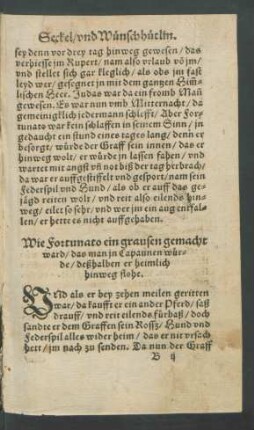 Seckel/ vnd Wünschhütlin.
sey denn vor drey tag hinweg gewesen/ das
verhiesse jm Rupert/ nam also vrlaub võ jm/
vnd stellet sich gar kleglich/ als obs jm fast
leyd wer/ gesegnet jn mit dem gantzen Him̃-
lischen Heer. Judas war da ein fromb Mañ
gewesen. Es war nun vmb Mitternacht/ da
gemeinigklich jedermann schlefft/ Aber For-
tunato war kein schlaffen in seinem Sinn/ in
gedaucht ein stund eines tages lang/ denn er
besorget/ würde der Graff sein innen/ das er
hinweg wolt/ er würde jn lassen fahen/ vnd
wartet mit angst vñ not biß der tag herbrach/
da war er auffgestiffelt vnd gesport/ nam sein
Federspil vnd Hund/ als ob er auff das ge-
jägd reiten wolt/ vnd reit also eilends hin-
weg/ eilet so sehr/ vnd wer jm ein aug entfal-
len/ er hette es nicht auffgehaben.
Wie Fortunato ein grausen gemacht
ward/ das man jn Capaunen wür-
de/ deßhalben er heimlich
hinweg flohe.
VNd als er bey zehen meilen geritten
war/ da kaufft er ein ander Pferd/ saß
drauff/ vnd reit eilends fürbaß/ doch
sandte er dem Graffen sein Rossz/ Hund vnd
Federspil alles wider heim/ das er nit vrsach
hett/ jm nach zu senden. Da nun der Graff
B ij